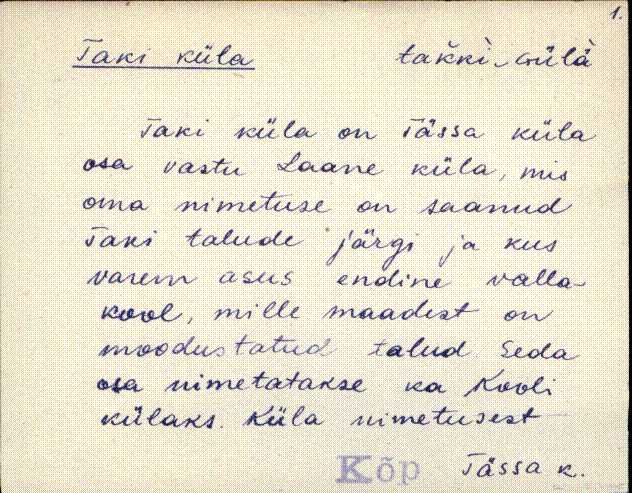 1.
Taki küla takki-külä
Taki küla on Tässa küla
osa vastu Laane küla, mis
oma nimetuse on saanud
Taki talude järgi ja kus
varem asus endine valla-
kool, mille maadest on
moodustatud talud. Seda
osa nimetatakse ka Kooli
külaks. Küla nimetusest
Kõp Tässa k.